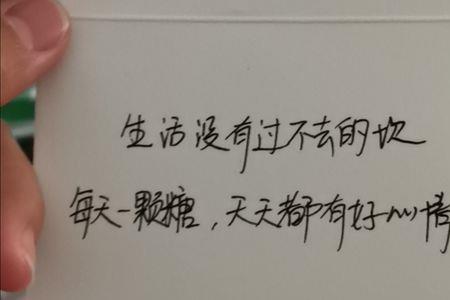 生活没有过不去的坎
每天一颗糖，天天都有好心情